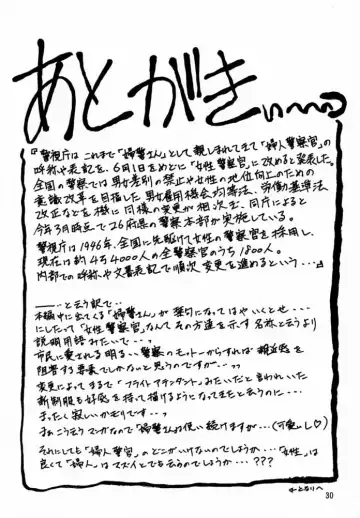 あとがきぃ〜〜っ
『警視庁は これまで「婦警さん」として 親しまれてきた「婦人警察官」の
呼称や表記を、6月1日をめどに「女性警察官」に改めると発表した。
全国の警察では 男女差別の禁止や女性の地位向上のための
意識改革を目指した 男女雇用機会均等法、労働基準法
改正などを機に 同様の変更が相次ぎ、同庁によると
今年3月時点で 26府県の警察本部が実施している。
警視庁は1946年、全国に先駆けて女性の警察官を採用し、
現在は 約4万4000人の全警察官のうち 1800人。
内部での呼称や文書表記で順次 変更を進めるという・・・』
———・・と云う訳で・・
本編中に出てくる「婦警さん」が 禁句になってはやいくとせ・・・
にしたって「女性警察官」なんて その方達を示す名称と云うより
説明用語みたいで・・・っ
市民に愛される明るい警察のモットーからすれば 親近感を
阻害する要素でしかないと思うのですが・・っ
変更によって まるで「フライトアテンダント」みたいだと言われいた
新制服も好感を持って描けるようになってきたと云うのに・・・
まったく寂しいかぎりです・・っ
まぁこう云うマンガなので「婦警さん」は使い続けますが・・・(可愛いし♡)
それにしても「婦人警官」のどこがいけないのでしょうか・・・「女性」は
良くて「婦人」は マズイとでも云うのでしょうか・・・???
となりへ
30